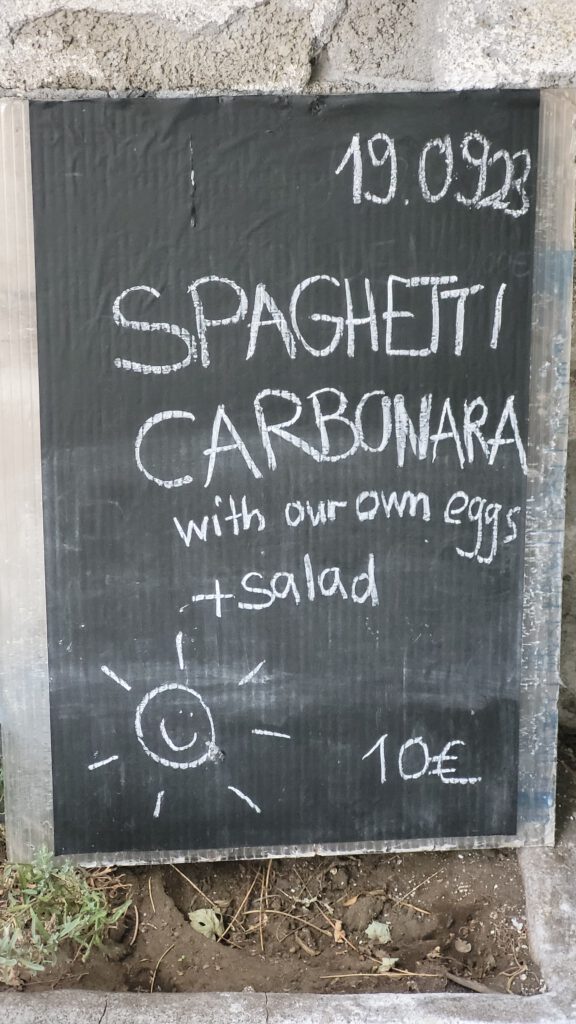 19.0923
SPAGHETTI
CARBONARA
with our own eggs
+salad
10€